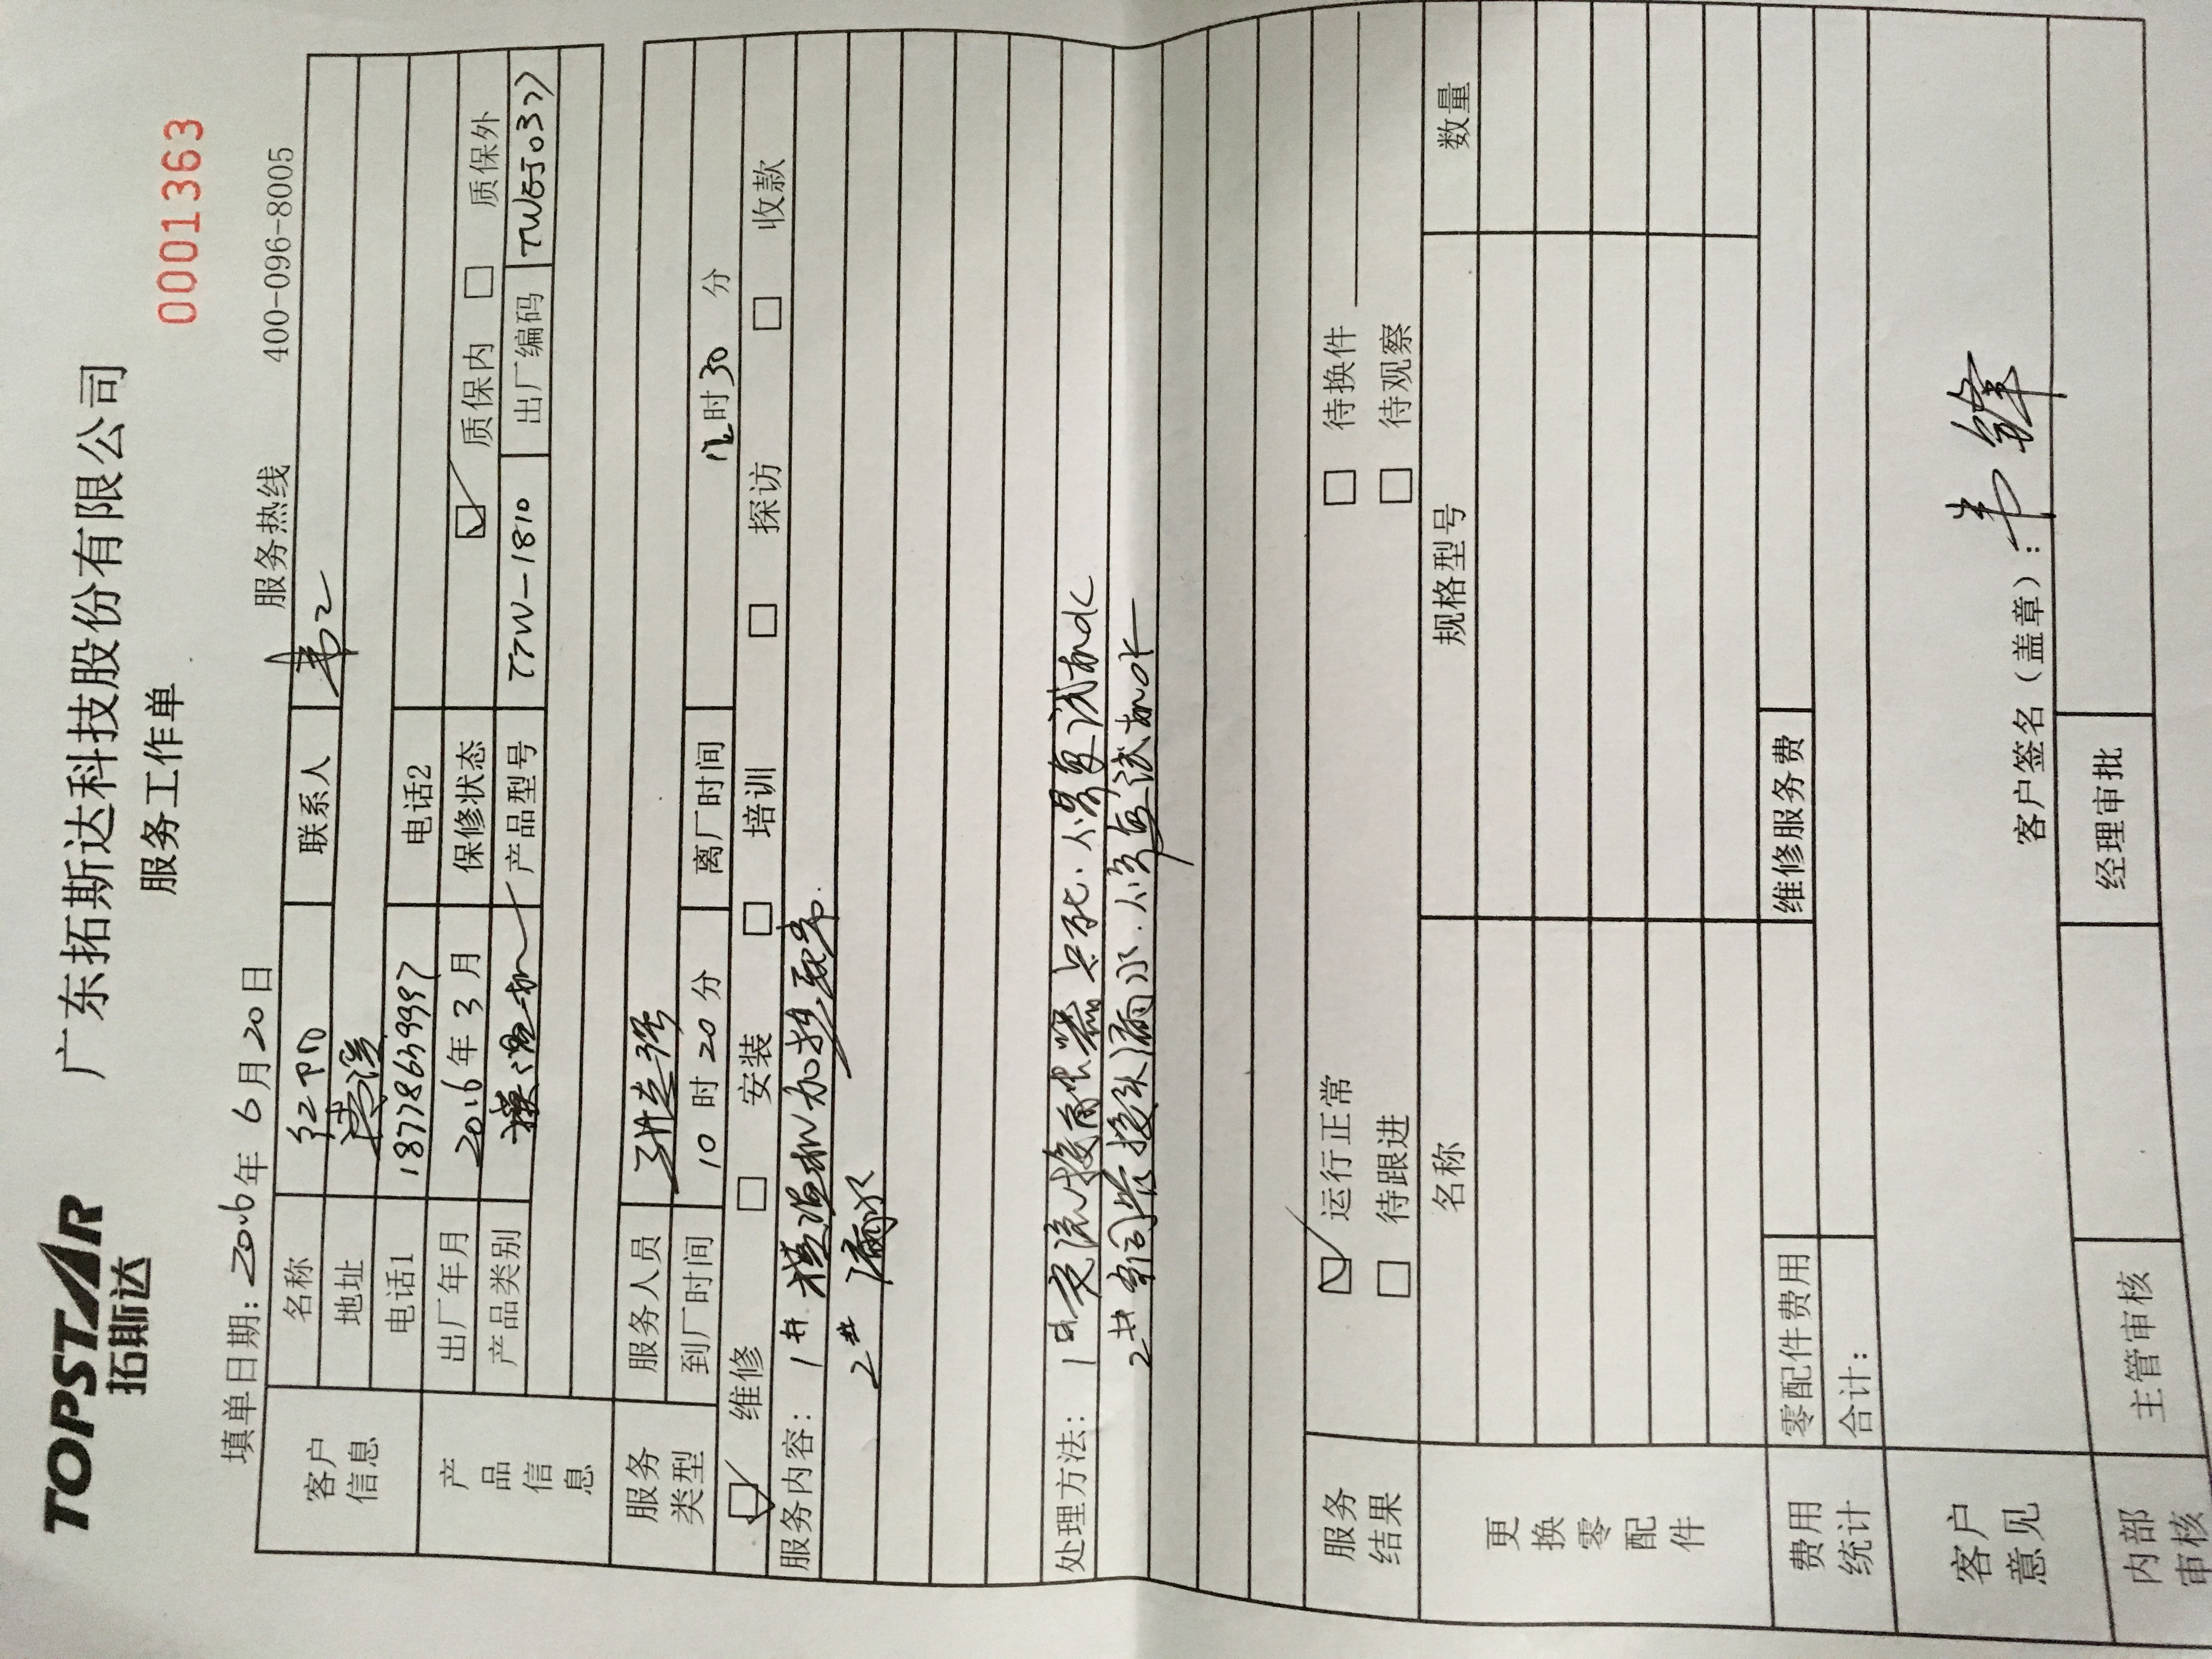 TOPSTAR
拓斯达
广东拓斯达科技股份有限公司
服务工作单
0001363
填单日期: 2016年 6月20日 服务热线 400-096-8005
客户信息
名称 联系人 韦工
地址
电话1 18778639997 电话2
产品信息
出厂年月 2016年 3月 保修状态 ☑ 质保内 □ 质保外
产品类别 模温机 产品型号 TTW-1810 出厂编码
服务类型
服务人员
到厂时间 10 时 20 分 离厂时间 12时30 分
☑ 维修 □ 安装 □ 培训 □ 探访 □ 收款
服务内容: 1# 模温机加热
2# 漏水
处理方法: 1# 交流接触器 试机ok
2# 接头漏水. 试机ok
服务结果
☑ 运行正常 □ 待换件
□ 待跟进 □ 待观察
更换零配件
名称 规格型号 数量
费用统计
零配件费用 维修服务费
合计:
客户意见
客户签名（盖章）: 韦锋
内部审核
主管审核 经理审批